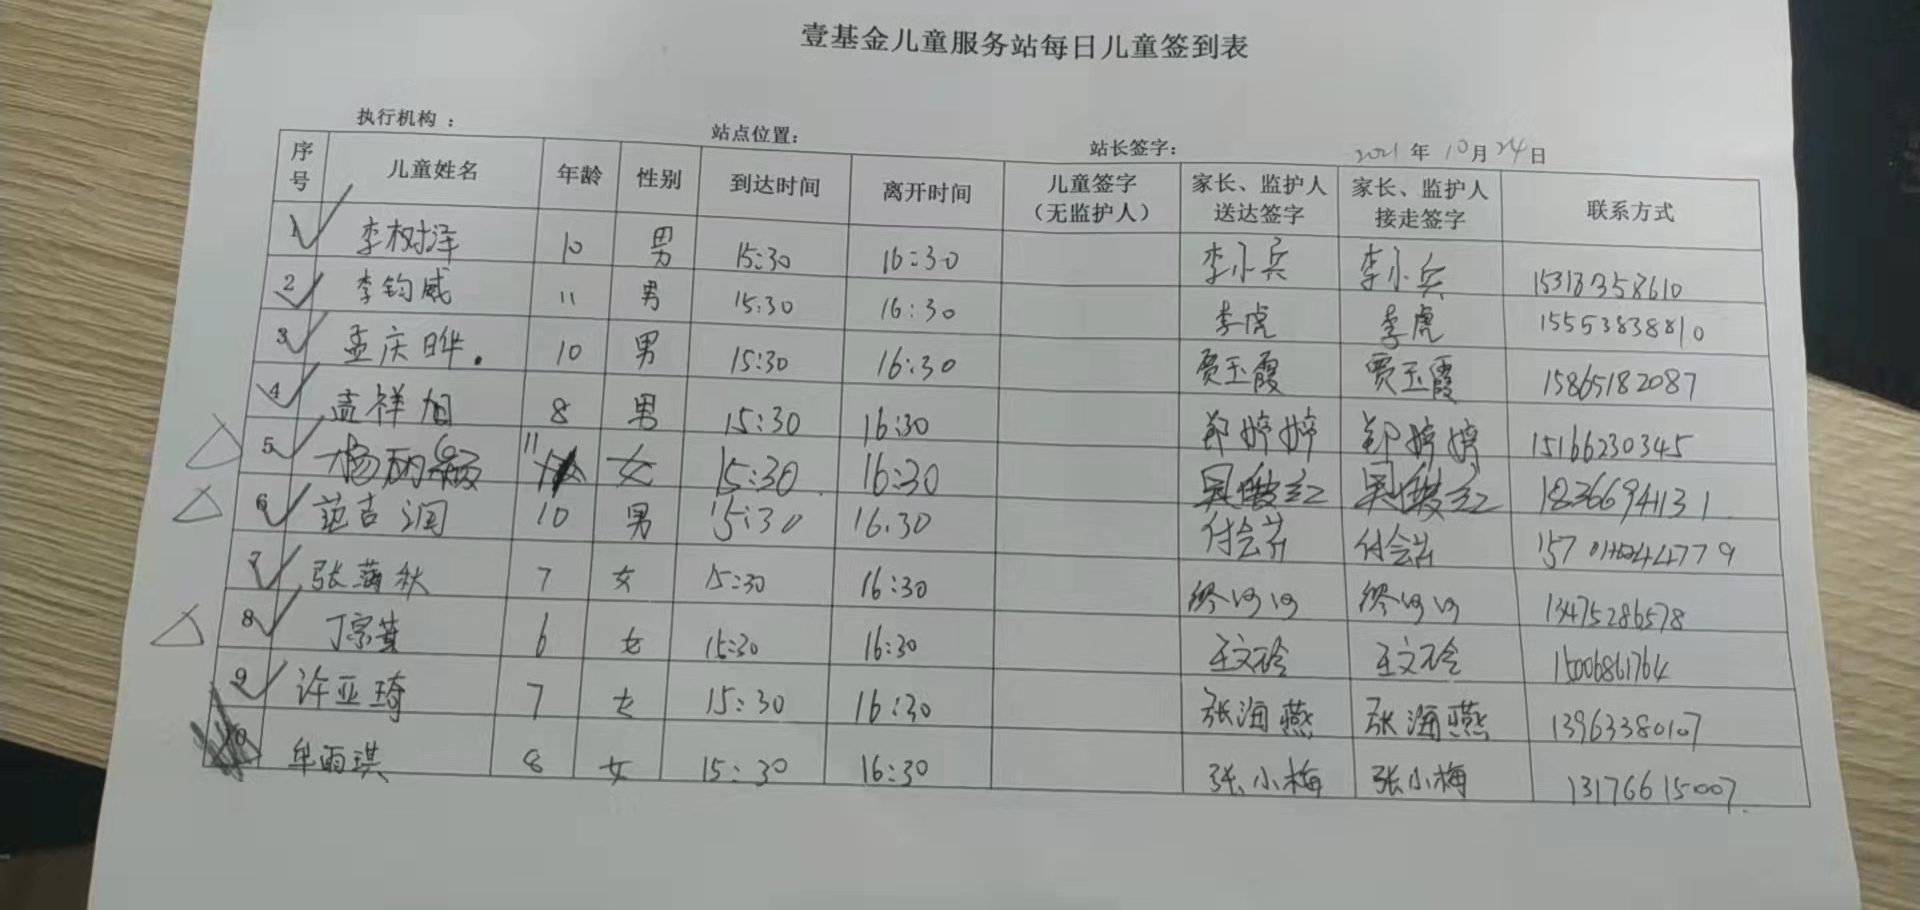 壹基金儿童服务站每日儿童签到表
执行机构： 站点位置： 站长签字： 2021年10月24日
序号 儿童姓名 年龄 性别 到达时间 离开时间 儿童签字（无监护人） 家长、监护人送达签字 家长、监护人接走签字 联系方式
1 李树泽 10 男 15:30 16:30 李小兵 李小兵 15318358610
2 李钧威 11 男 15:30 16:30 李虎 李虎 15553838810
3 孟庆晔. 10 男 15:30 16:30 贾玉霞 贾玉霞 15865182087
4 孟祥旭 8 男 15:30 16:30 郑婷婷 郑婷婷 15166230345
5 杨丽颖 11 女 15:30 16:30 18366941131
6 范吉润 10 男 15:30 16:30 付会芳 付会芳
7 张蒲秋 7 女 15:30 16:30 13475286578
8 丁宗 6 女 15:30 16:30 王文玲 王文玲 15006861764
9 许亚琦 7 女 15:30 16:30 张海燕 张海燕 13963380107
10 牟雨琪 8 女 15:30 16:30 张小梅 张小梅 13176615007